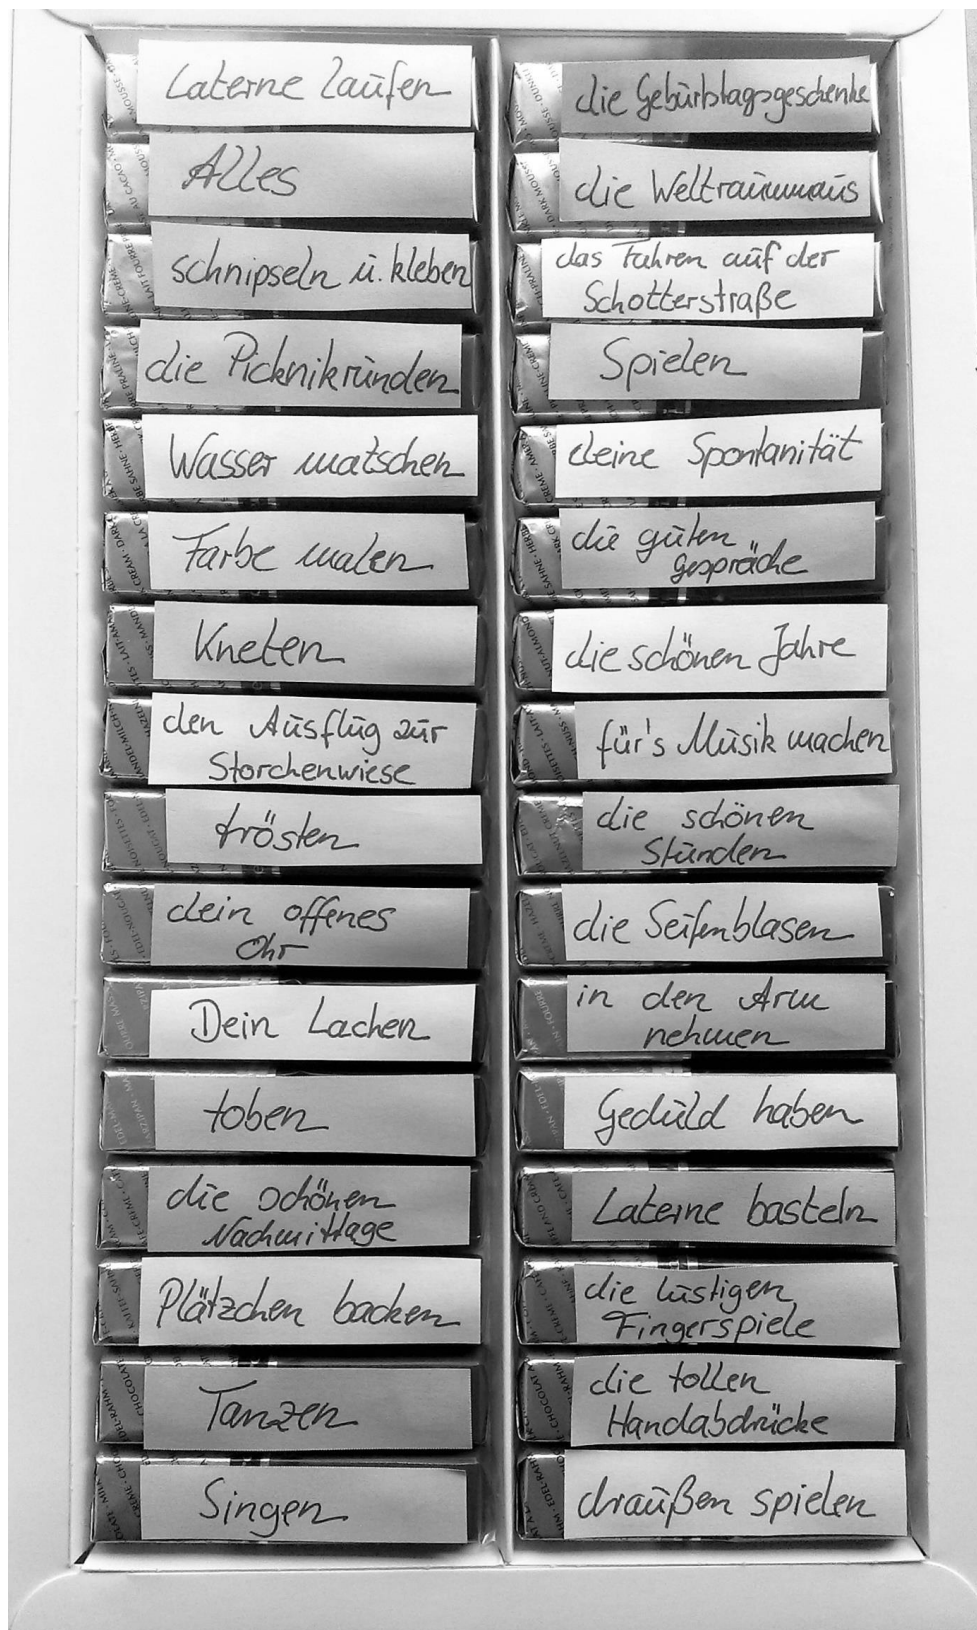 Laterne laufen
Alles
schnipseln u. kleben
die Picknikrunden
Wasser matschen
Farbe malen
Kneten
den Ausflug zur
Storchenwiese
trösten
dein offenes
Ohr
Dein Lachen
toben
die schönen
Nachmittage
Plätzchen backen
Tanzen
Singen
die Geburtstagsgeschenke
die Weltraummaus
das Fahren auf der
Schotterstraße
Spielen
deine Spontanität
die guten
Gespräche
die schönen Jahre
für's Musik machen
die schönen
Stunden
die Seifenblasen
in den Arm
nehmen
Geduld haben
Laterne basteln
die lustigen
Fingerspiele
die tollen
Handabdrücke
draußen spielen